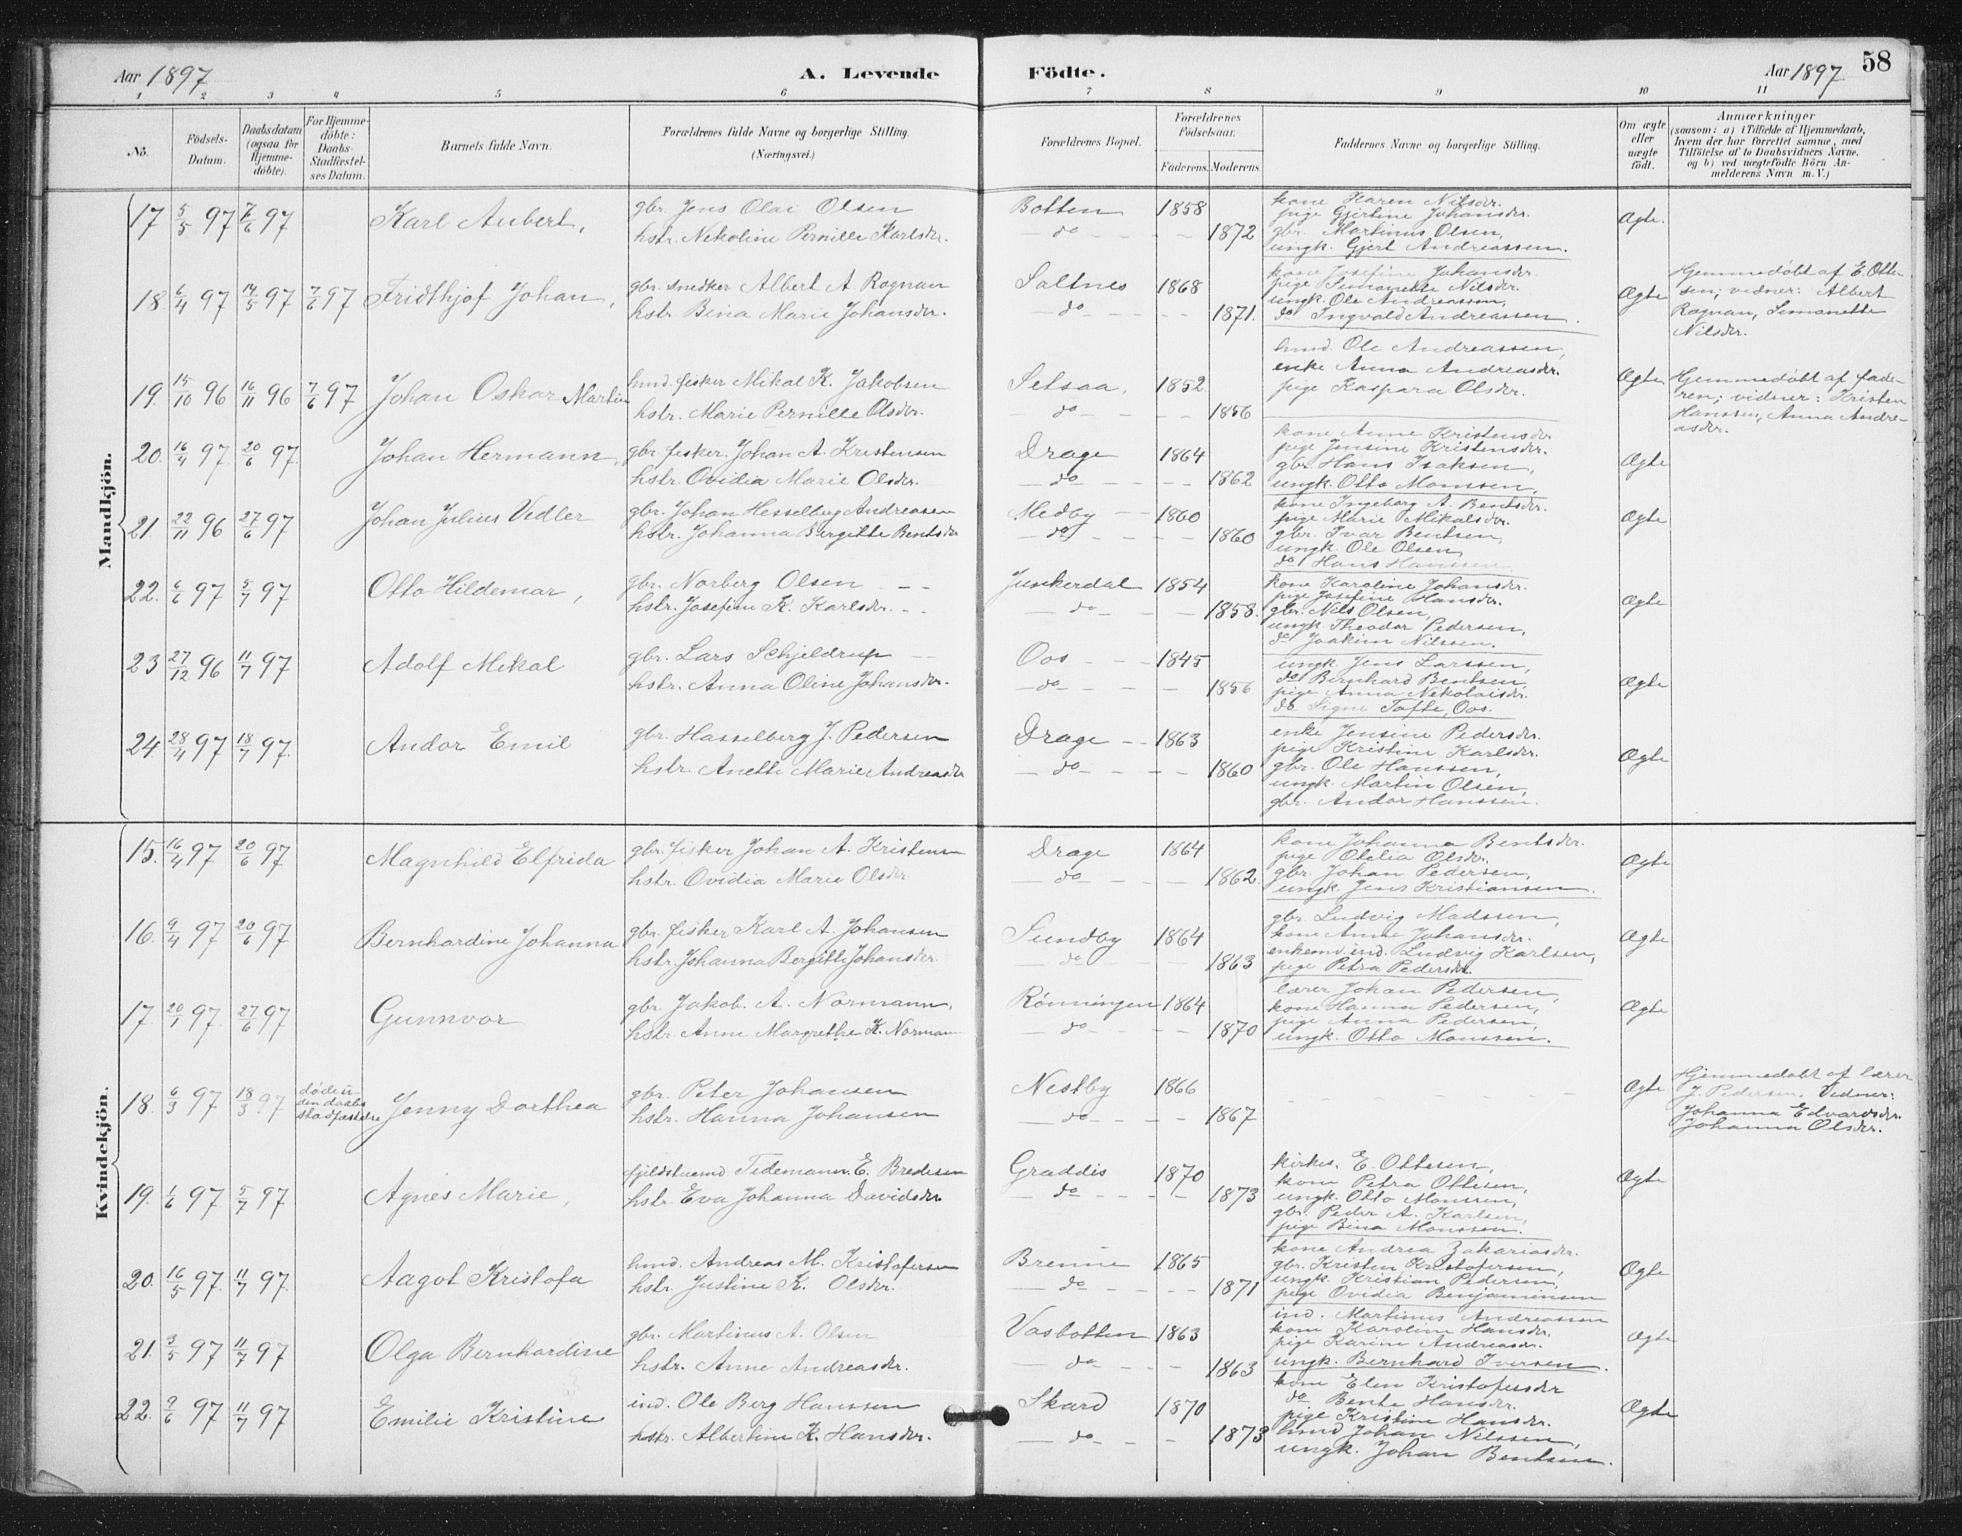 Aar 1897
A. Levende
Födte.
Aar 1897.
58
1 2 3 4 5 6 7 8 9 10 11
No.
Födsels-Datum.
Daabsdatum (ogsaa for Hjemme-döbte).
For Hjemme-döbte: Daabs-Stadfæstel-ses Datum.
Barnets fulde Navn.
Forældrenes fulde Navne og borgerlige Stilling. (Næringsvei.)
Forældrenes Bopæl.
Forældrenes Födselsaar.
Faderens. Moderens.
Faddernes Navne og borgerlige Stilling.
Om ægte eller uægte födt.
Anmærkninger
(saasom: a) i Tilfælde af Hjemmedaab,
hvem der har forrettet samme, med
Tilföielse af to Daabsvidners Navne,
og b) ved uægtefödte Börn An-
melderens Navn m. V.)
Mandkjön.
17 5/5 97 7/6 97 Karl Aubert, gbr. Jens Olai Olsen Botten 1858 kone Karen Nilsdr.
pige Gjertine Johansdr. Ægte.
hstr. Nikoline Pernille Karlsdr. do 1872 gbr. Martinus Olsen,
ungk. Gjert Andreassen.
18. 6/4 97 14/5 97 7/6 97 Fridthjof Johan, gbr. snedker Albert A. Rognan Saltnes 1868 kone Josefine Johansdr. Hjemmedøbt af E. Otte-
pige Simonette Nilsdr. Ægte sen; vidner: Albert
hstr. Bina Marie Johansdr. do 1871. ungk. Ole Andreassen, Rognan, Simonette
do Ingvald Andreassen. Nilsdr.
19. 15/10 96 16/11 96 7/6 97 Johan Oskar Martin hmd. fisker Mikal K. Jakobsen Setsaa, 1852 hmd. Ole Andreassen,
enke Anna Andreasdr. Ægte Hjemmedøbt af fade-
hstr. Marie Pernille Olsdr. do 1856 pige Kaspara Olsdr. ren; vidner: Kristen
Hanssen, Anna Andre-
asdr.
20. 16/4 97. 20/6 97. Johan Hermann, gbr. fisker. Johan A. Kristensen Drage 1864 kone Anne Kristensdr.
pige Jensine Kristensdr. Ægte
hstr. Ovidia Marie Olsdr. do 1862 gbr. Hans Isaksen,
ungk. Otto Monssen,
21. 22/11 96 27/6 97 Johan Julius Vedler gbr. Johan Hesselberg Andreasen Medby 1860 kone Ingeborg A. Bentsdr.
pige Marie Mikalsdr. Ægte
hstr. Johanna Bergitte Bentsdr do 1860 gbr. Ivar Bentsen,
ungk. Ole Olsen,
do Hans Hanssen.
22. 6/6 97 5/7 97 Otto Hildemar, gbr. Norberg Olsen Junkerdal 1854 kone Karoline Johansdr.
pige Josefine Hansdr. Ægte
hstr. Josefine K. Karlsdr. do 1858. gbr. Nils Olsen,
ungk. Theodor Pedersen,
do Joakim Nilssen.
23 27/12 96 11/7 97 Adolf Mikal gbr. Lars Schjeldrup Oos 1845 ungk. Jens Larssen,
do Bernhard Bentsen Ægte
hstr. Anna Oline Johansdr. do 1856 pige Anna Nekolaisdr.
do. Signe Tofte, Oos.
24. 28/4 97 18/7 97. Andor Emil gbr. Hasselberg J. Pedersen Drage 1863 enke Jensine Pedersdr.
pige Kristine Karlsdr. Ægte
hstr. Anette Marie Andreasdr do 1860 gbr. Ole Hanssen,
ungk. Martin Olsen,
gbr. Andor Hanssen.
Kvindekjön.
15. 16/4 97 20/6 97 Magnhild Elfrida gbr. fisker Johan A. Kristensen Drage 1864 kone Johanna Bentsdr.
pige Otelia Olsdr. Ægte
hstr. Ovidia Marie Olsdr do 1862. gbr. Johan Pedersen,
ungk. Jens Kristiansen.
16. 9/4 97 20/6 97 Bernhardine Johanna gbr. fisker Karl A. Johansen Sundby 1864 gbr. Ludvig Madssen,
kone Anne Johansdr. Ægte
hstr. Johanna Bergitte Johansdr. do 1863 enkemd. ind. Ludvig Karlsen,
pige Petra Pedersdr.
17 20/1 97. 27/6 97 Gunnvor gbr. Jakob. A. Normann, Rönningen 1864 lærer Johan Pedersen,
kone Hanna Pedersen, Ægte
hstr. Anne Margrethe K. Norman do 1870 pige Anna Pedersen,
ungk. Otto Monssen.
18. 6/3 97 18/3 97 døde u-
den daabs
stadfæstelse Jenny Dorthea gbr. Peter Johansen Nestby 1866 Ægte Hjemmedøbt af lærer
J. Pedersen. Vidner:
hstr. Hanna Johansen do 1867 Johanna Edvardsdr.
Johanna Olsdr.
19. 1/6 97 5/7 97 Agnes Marie, fjeldstuemd Tidemann. E. Bredesen Graddis 1870 kirkes. E. Ottesen,
kone Petra Ottesen, Ægte
hstr. Eva Johanna Davidsdr do 1873 ungk. Otto Monssen,
gbr. Peder A. Karlsen,
pige Bina Monssen.
20. 16/5 97. 11/7 97. Aagot Kristofa hmd. Andreas M. Kristofersen Brenne 1865 kone Andrea Zakariasdr.
gbr. Kristen Kristofersen, Ægte
hstr. Justine K. Olsdr. do 1871 ungk. Kristian Pedersen,
pige Ovidia Benjaminsen
21. 3/5 97 11/7 97 Olga Bernhardine gbr. Martinus A. Olsen Vasbotten 1863 ind. Martinus Andreassen
kone Karoline Hansdr. Ægte
hstr. Anne Andreasdr. do 1863 pige Karine Andreasdr.
ungk. Bernhard Iversen.
22. 9/6 97 11/7 97 Emilie Kristine ind. Ole Berg Hanssen Skard 1870 kone Elen Kristofersdr
do Bente Hansdr. Ægte
hstr. Albertine K. Hansdr. do 1873 pige Kristine Hansdr.
hmd Johan Nilssen,
ungk. Johan Bentsen.